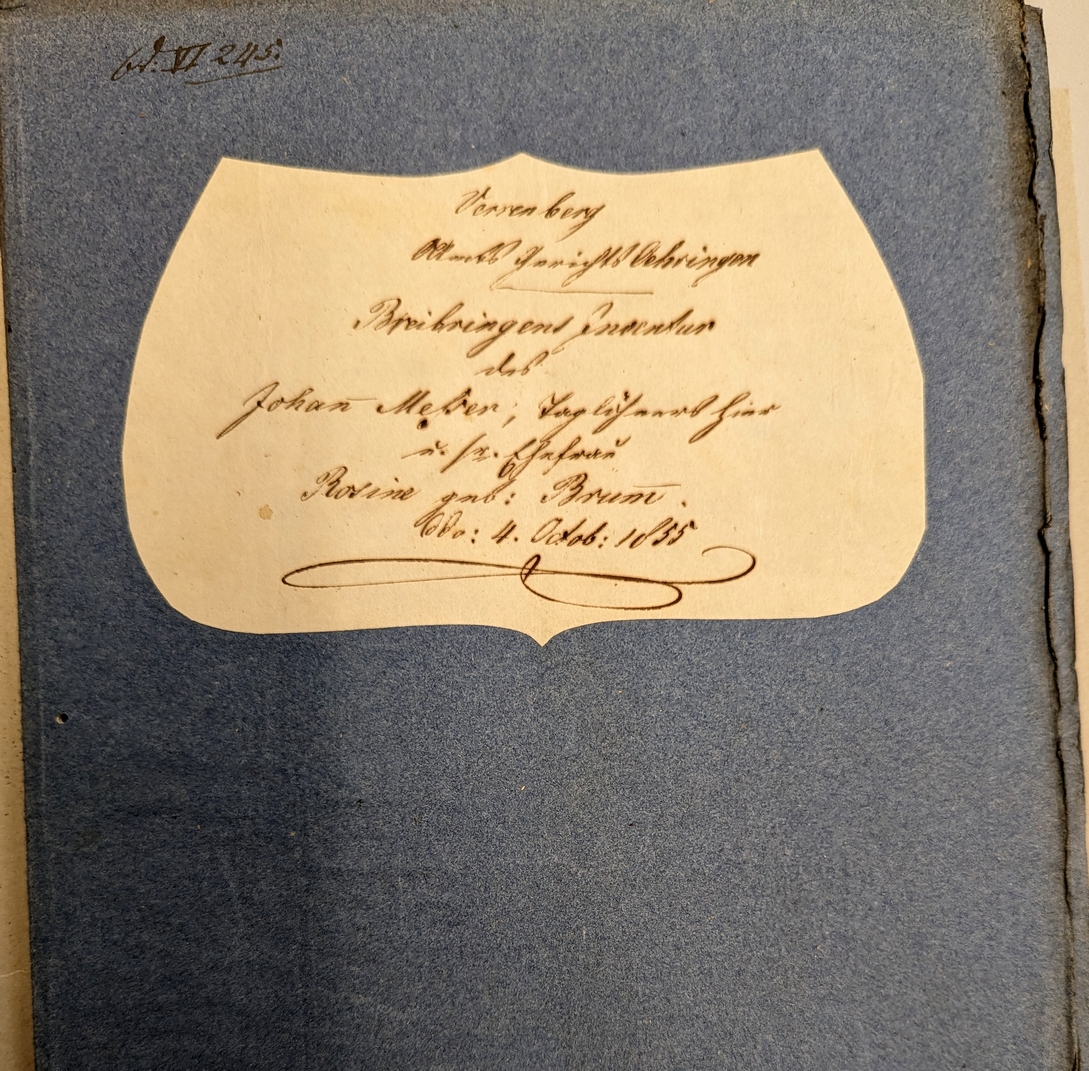 Bd. VI 245.
Verrenberg
Amts Gerichts Oehringen
Beibringens Inventur
des
Johan̄ Metzer, Taglöhners hier
u. sr. Ehefrau
Rosine geb: Brum̄.
ddo: 4. Octob: 1855